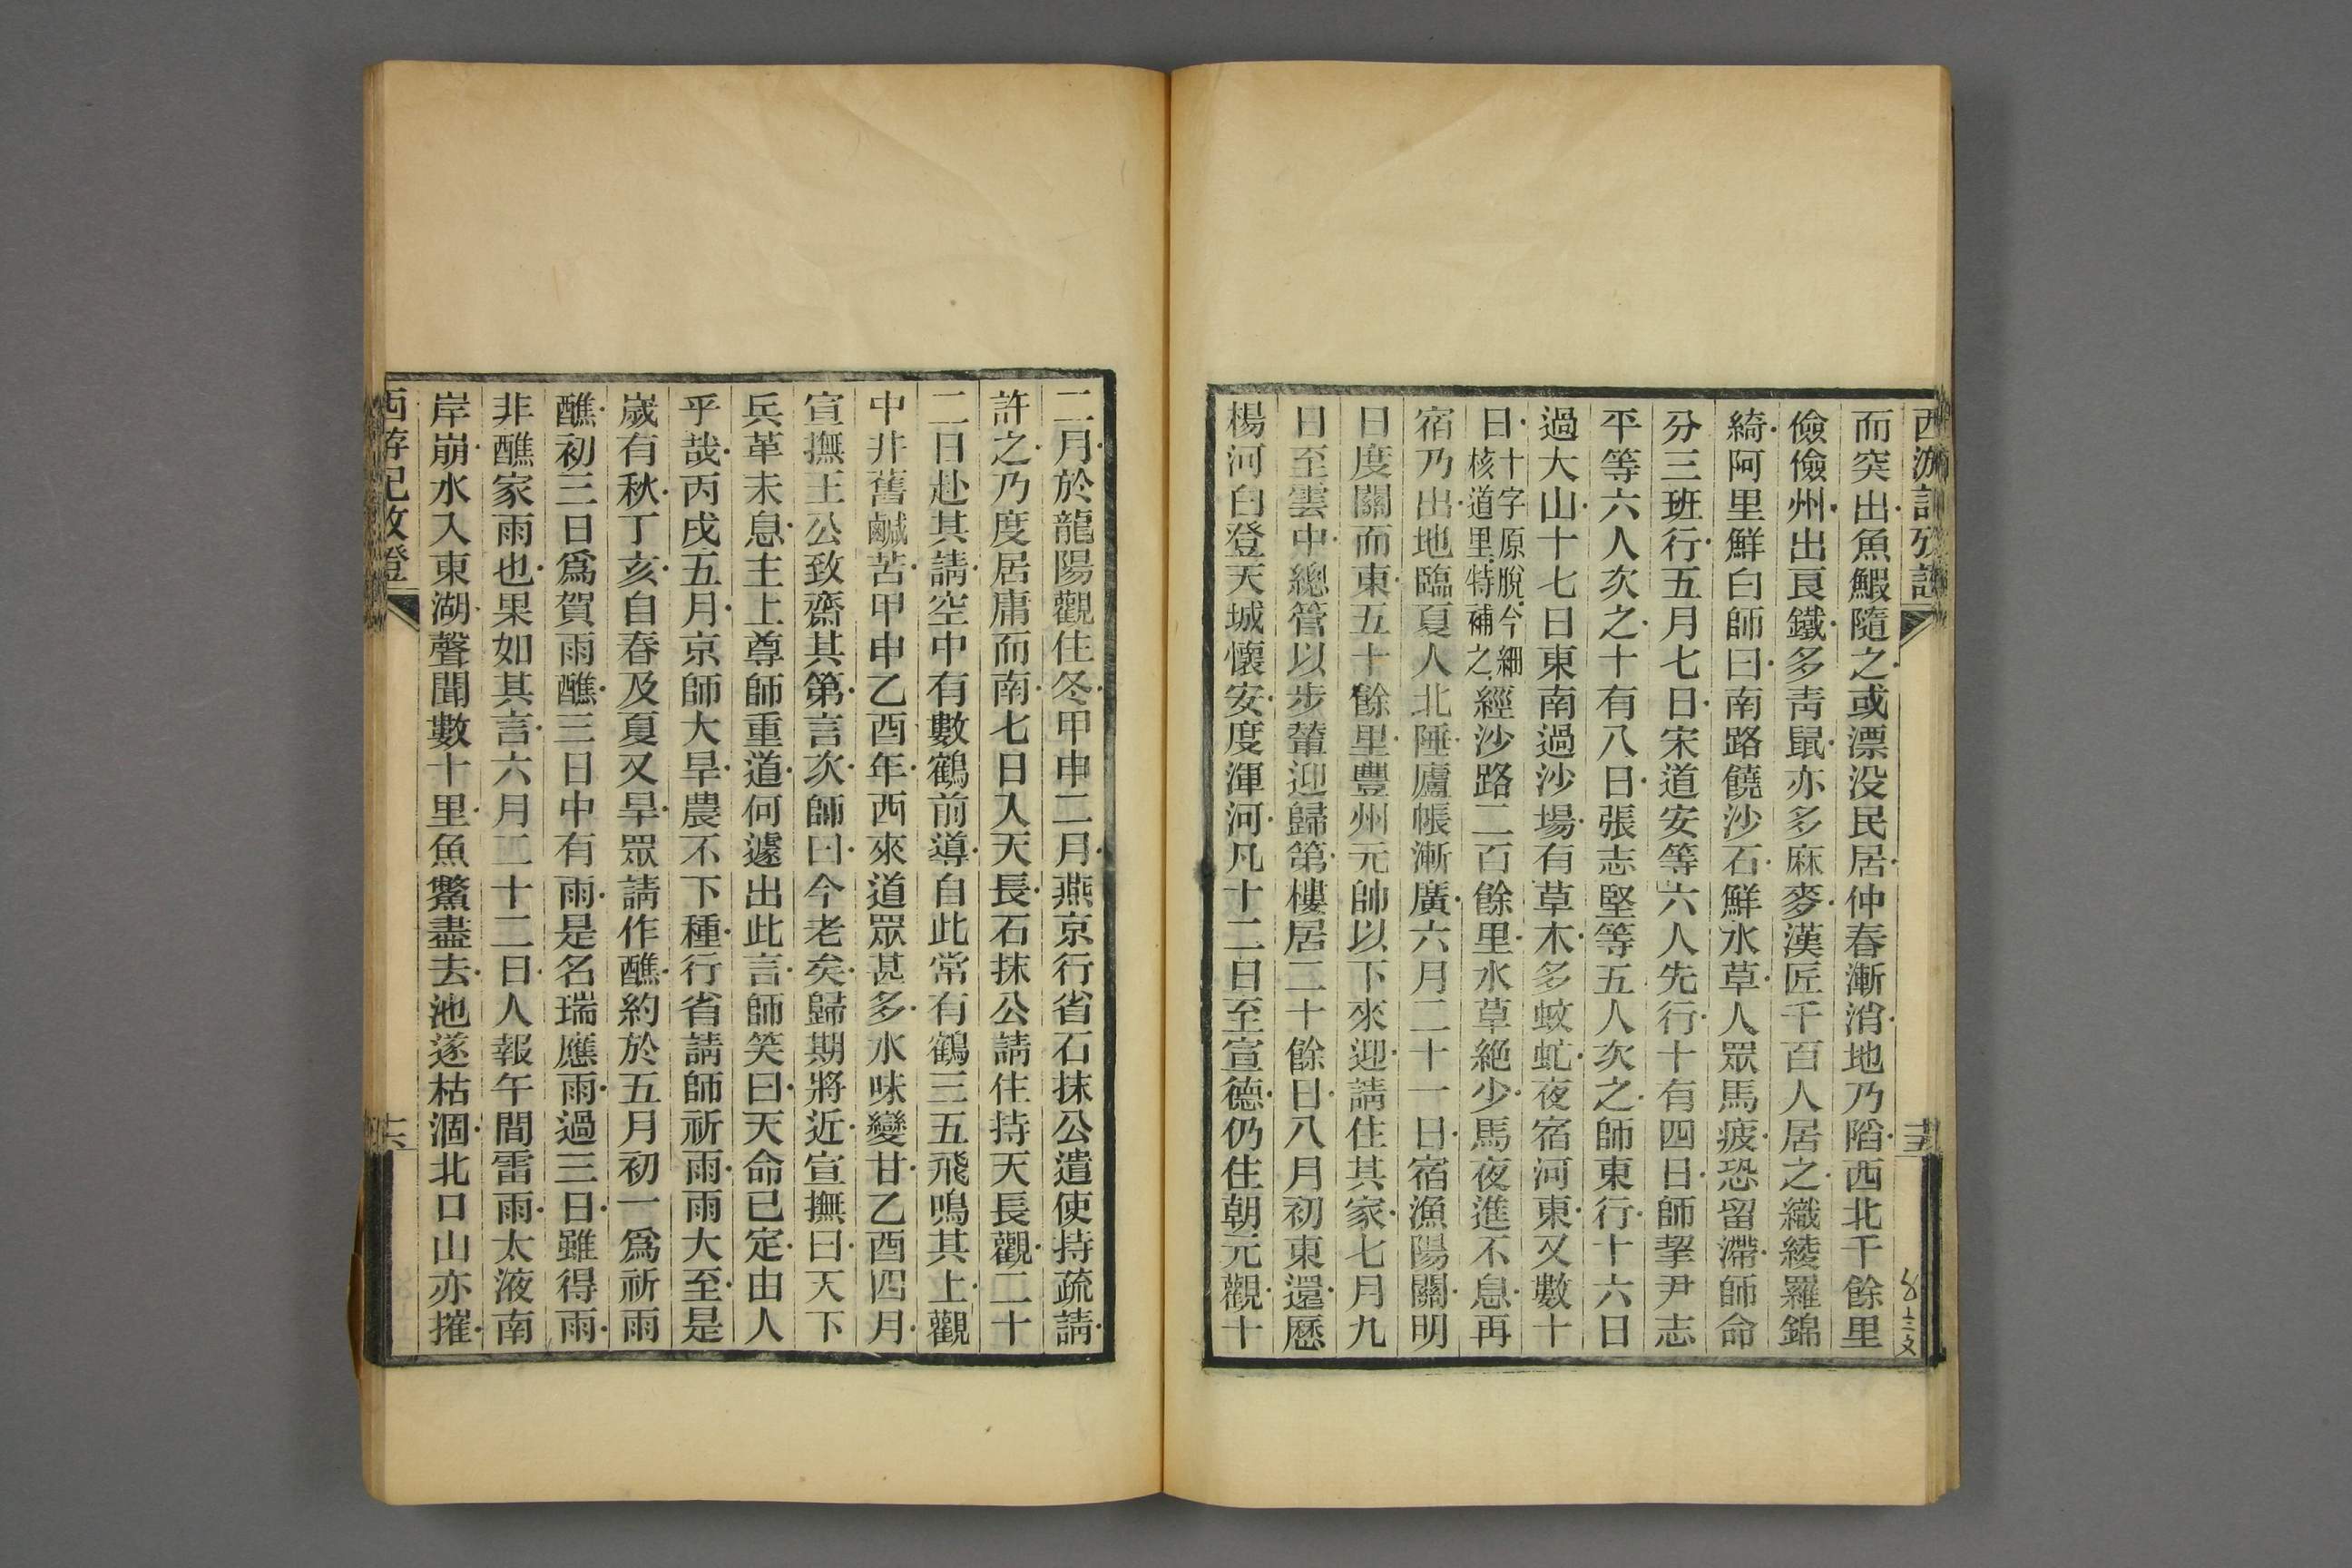 西游記攷證
而突出魚鰕隨之或漂没民居仲春漸消地乃陷西北千餘里
儉儉州出良鐵多靑鼠亦多麻麥漢匠千百人居之織綾羅錦
綺阿里鮮白師曰南路饒沙石鮮水草人眾馬疲恐留滯師命
分三班行五月七日宋道安等六人先行十有四日師挈尹志
平等六人次之十有八日張志堅等五人次之師東行十六日
過大山十七日東南過沙場有草木多蚊虻夜宿河東又數十
日十字原脫今細核道里特補之經沙路二百餘里水草絶少馬夜進不息再
宿乃出地臨夏人北陲廬帳漸廣六月二十一日宿漁陽關明
日度關而東五十餘里豐州元帥以下來迎請住其家七月九
日至雲中總管以步輦迎歸第樓居二十餘日八月初東還歷
楊河白登天城懷安度渾河凡十二日至宣德仍住朝元觀十
二月於龍陽觀住冬甲申二月燕京行省石抹公遣使持疏請
許之乃度居庸而南七日入天長石抹公請住持天長觀二十
二日赴其請空中有數鶴前導自此常有鶴三五飛鳴其上觀
中井舊鹹苦甲申乙酉年西來道眾甚多水味變甘乙酉四月
宣撫王公致齋其第言次師曰今老矣歸期將近宣撫曰天下
兵革未息主上尊師重道何遽出此言師笑曰天命已定由人
乎哉丙戌五月京師大旱農不下種行省請師祈雨雨大至是
嵗有秋丁亥自春及夏又旱眾請作醮約於五月初一爲祈雨
醮初三日爲賀雨醮三日中有雨是名瑞應雨過三日雖得雨
非醮家雨也果如其言六月二十二日人報午間雷雨太液南
岸崩水入東湖聲聞數十里魚鱉盡去池遂枯涸北口山亦摧
西游記攷證